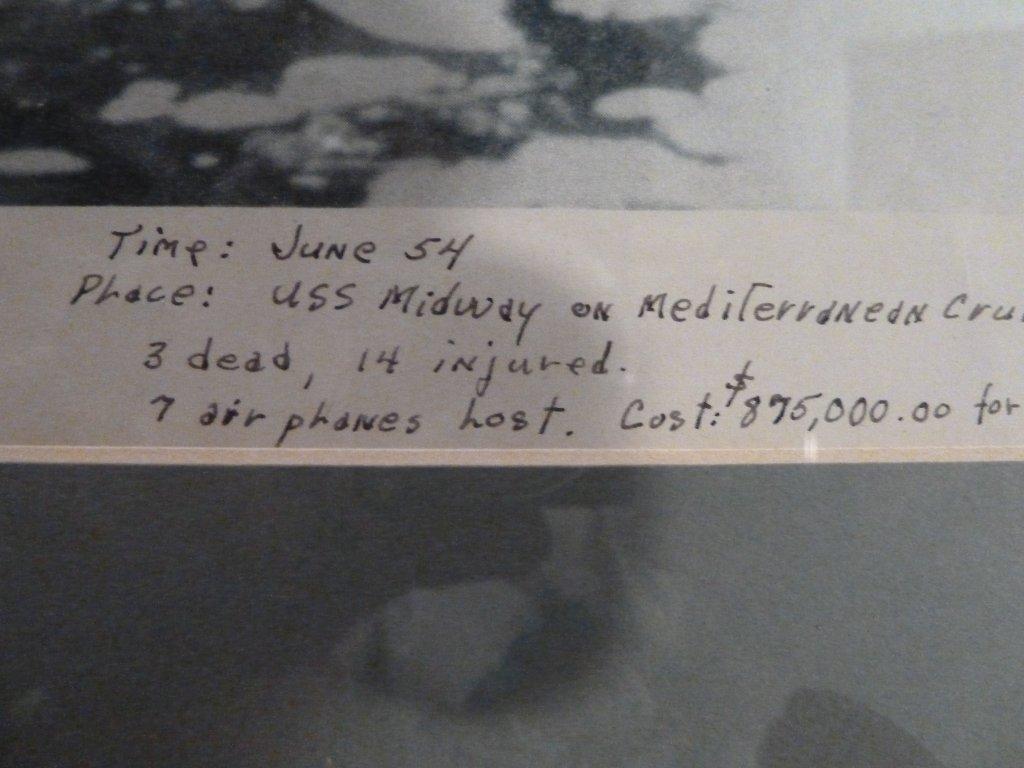 Time: June 54
Place: USS Midway on Mediterranean Cru
3 dead, 14 injured.
7 air planes lost. Cost: $875,000.00 for